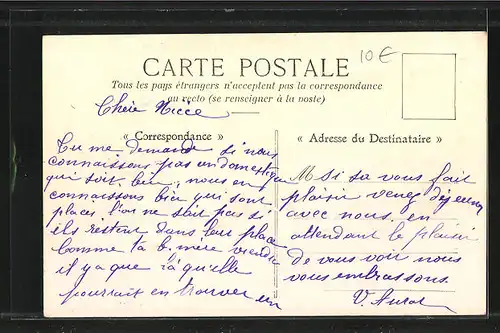 10€
CARTE POSTALE
Tous les pays étrangers n'acceptent pas la correspondance
au recto (se renseigner à la poste)
Chère Niece
« Correspondance »
Tu me demande si nous
connaissons pas un domestique
qui soit bien, nous en
connaissons bien qui sont
placés, l'on ne sait pas si
ils restent dans leur place
Comme ta b. mère viendra
il y a que là qu'elle
pourrait en trouver un
« Adresse du Destinataire »
Si sa vous fait
plaisir venez déjeuner
avec nous en
attendant le plaisir
de vous voir nous
vous embrassons.